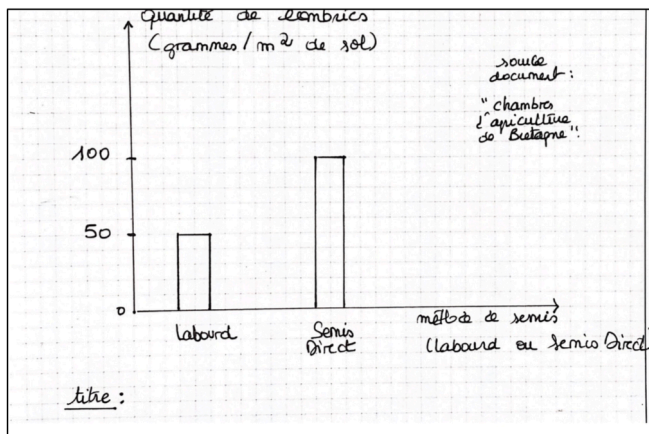 quantité de lombrics
(grammes/m² de sol)
source
document :
"chambres
d'agriculture
de Bretagne".
100
50
0
Labourd
Semis
Direct
méthode de semis
(labourd ou Semis Direct
titre :